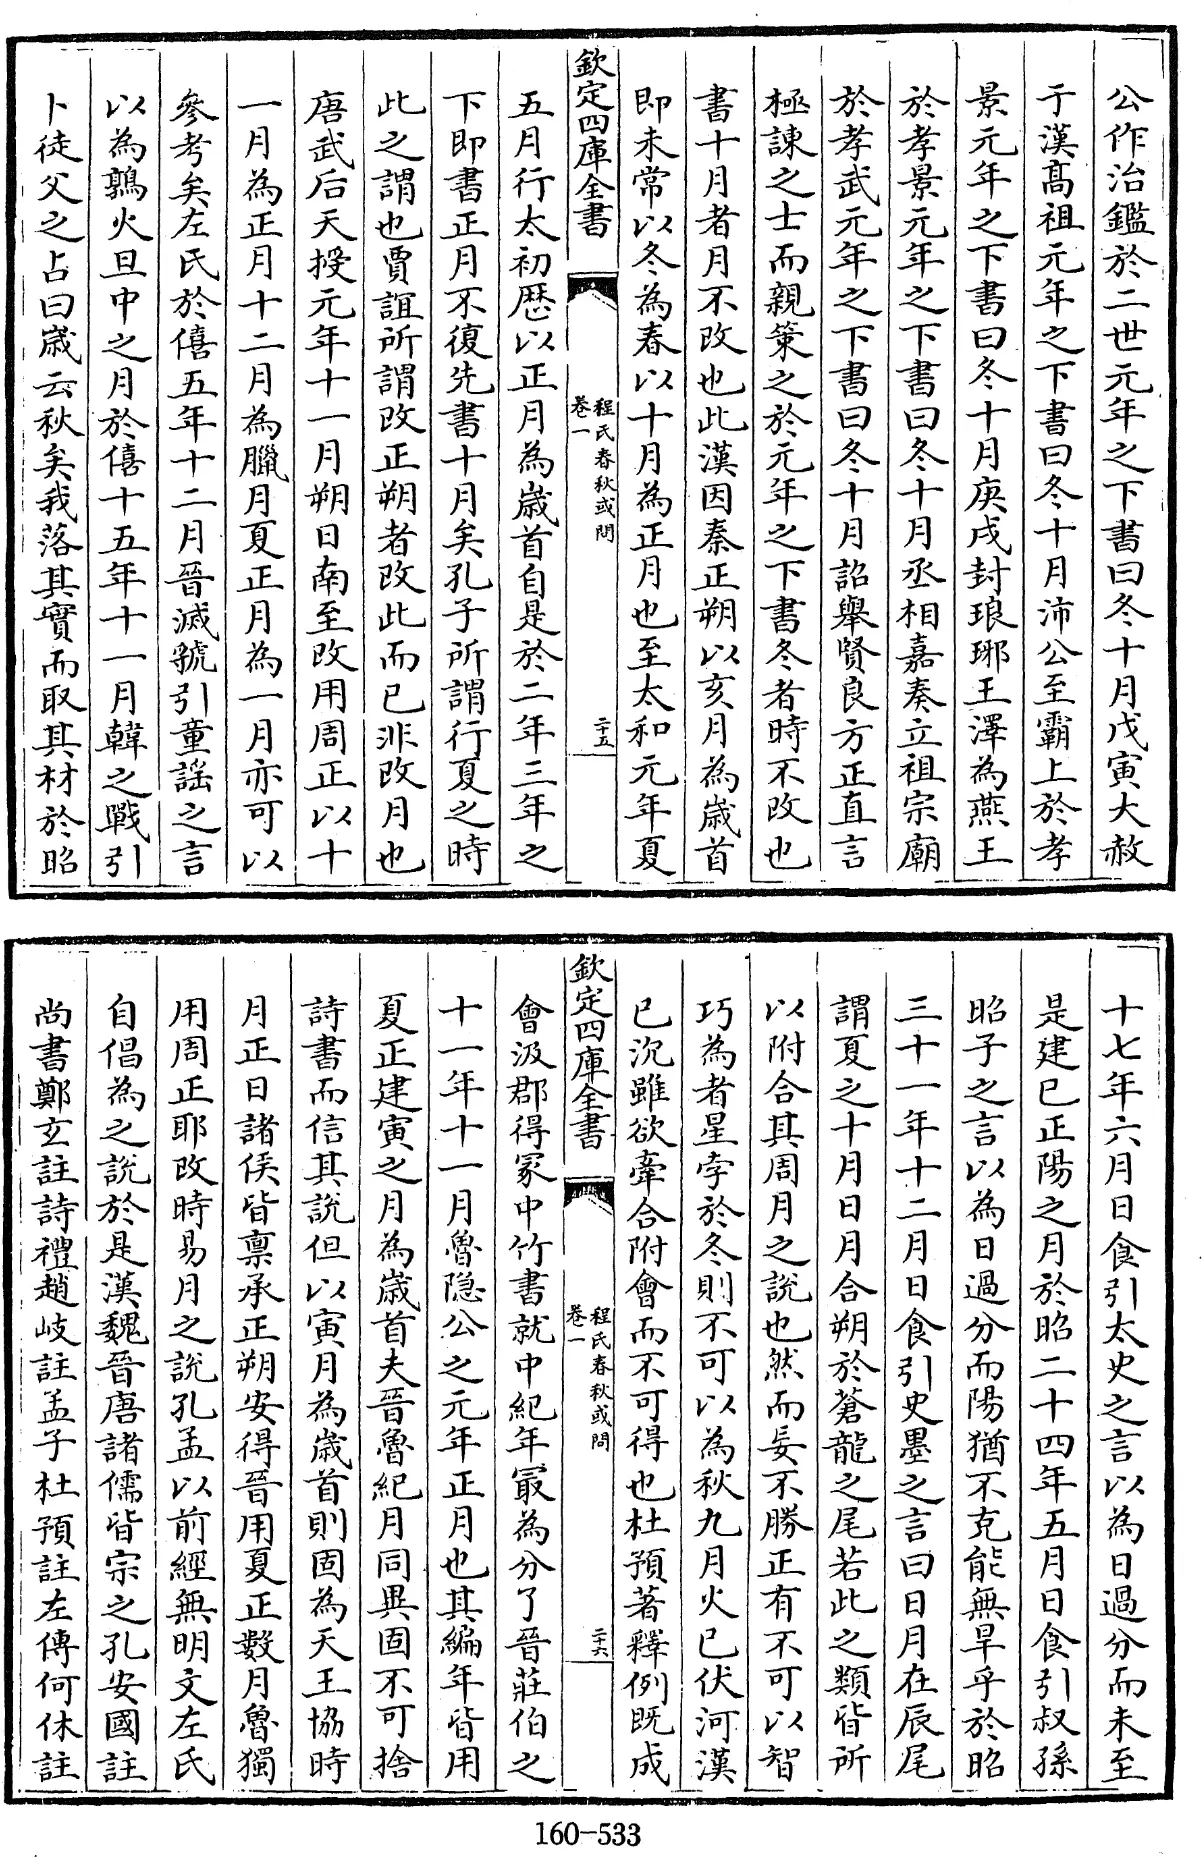 公作治鑑於二世元年之下書曰冬十月戊寅大赦
于漢髙祖元年之下書曰冬十月沛公至霸上於孝
景元年之下書曰冬十月庚戌封琅琊王澤為燕王
於孝景元年之下書曰冬十月丞相嘉奏立祖宗廟
於孝武元年之下書曰冬十月詔舉賢良方正直言
極諫之士而親䇿之於元年之下書冬者時不改也
書十月者月不改也此漢因秦正朔以亥月為歲首
即未常以冬為春以十月為正月也至太和元年夏
欽定四庫全書
程氏春秋或問
卷一
二十五
五月行太初厯以正月為歲首自是於二年三年之
下即書正月不復先書十月矣孔子所謂行夏之時
此之謂也賈誼所謂改正朔者改此而已非改月也
唐武后天授元年十一月朔日南至改用周正以十
一月為正月十二月為臘月夏正月為一月亦可以
參考矣左氏於僖五年十二月晉滅虢引童謡之言
以為鶉火旦中之月於僖十五年十一月韓之戰引
卜徒父之占曰嵗云秋矣我落其實而取其材於昭
十七年六月日食引太史之言以為日過分而未至
是建巳正陽之月於昭二十四年五月日食引叔孫
昭子之言以為日過分而陽猶不克能無旱乎於昭
三十一年十二月日食引史墨之言曰日月在辰尾
謂夏之十月日月合朔於蒼龍之尾若此之類皆所
以附合其周月之說也然而妄不勝正有不可以智
巧為者星孛於冬則不可以為秋九月火已伏河漢
已沉雖欲牽合附會而不可得也杜預著釋例既成
欽定四庫全書
程氏春秋或問
卷一
二十六
會汲郡得冢中竹書就中紀年冣為分了晉莊伯之
十一年十一月魯隐公之元年正月也其編年皆用
夏正建寅之月為歲首夫晉魯紀月同異固不可捨
詩書而信其說但以寅月為歲首則固為天王協時
月正日諸侯皆禀承正朔安得晉用夏正數月魯獨
用周正耶改時易月之說孔孟以前經無明文左氏
自倡為之說於是漢魏晉唐諸儒皆宗之孔安國註
尚書鄭玄註詩禮趙岐註孟子杜預註左傳何休註
160-533